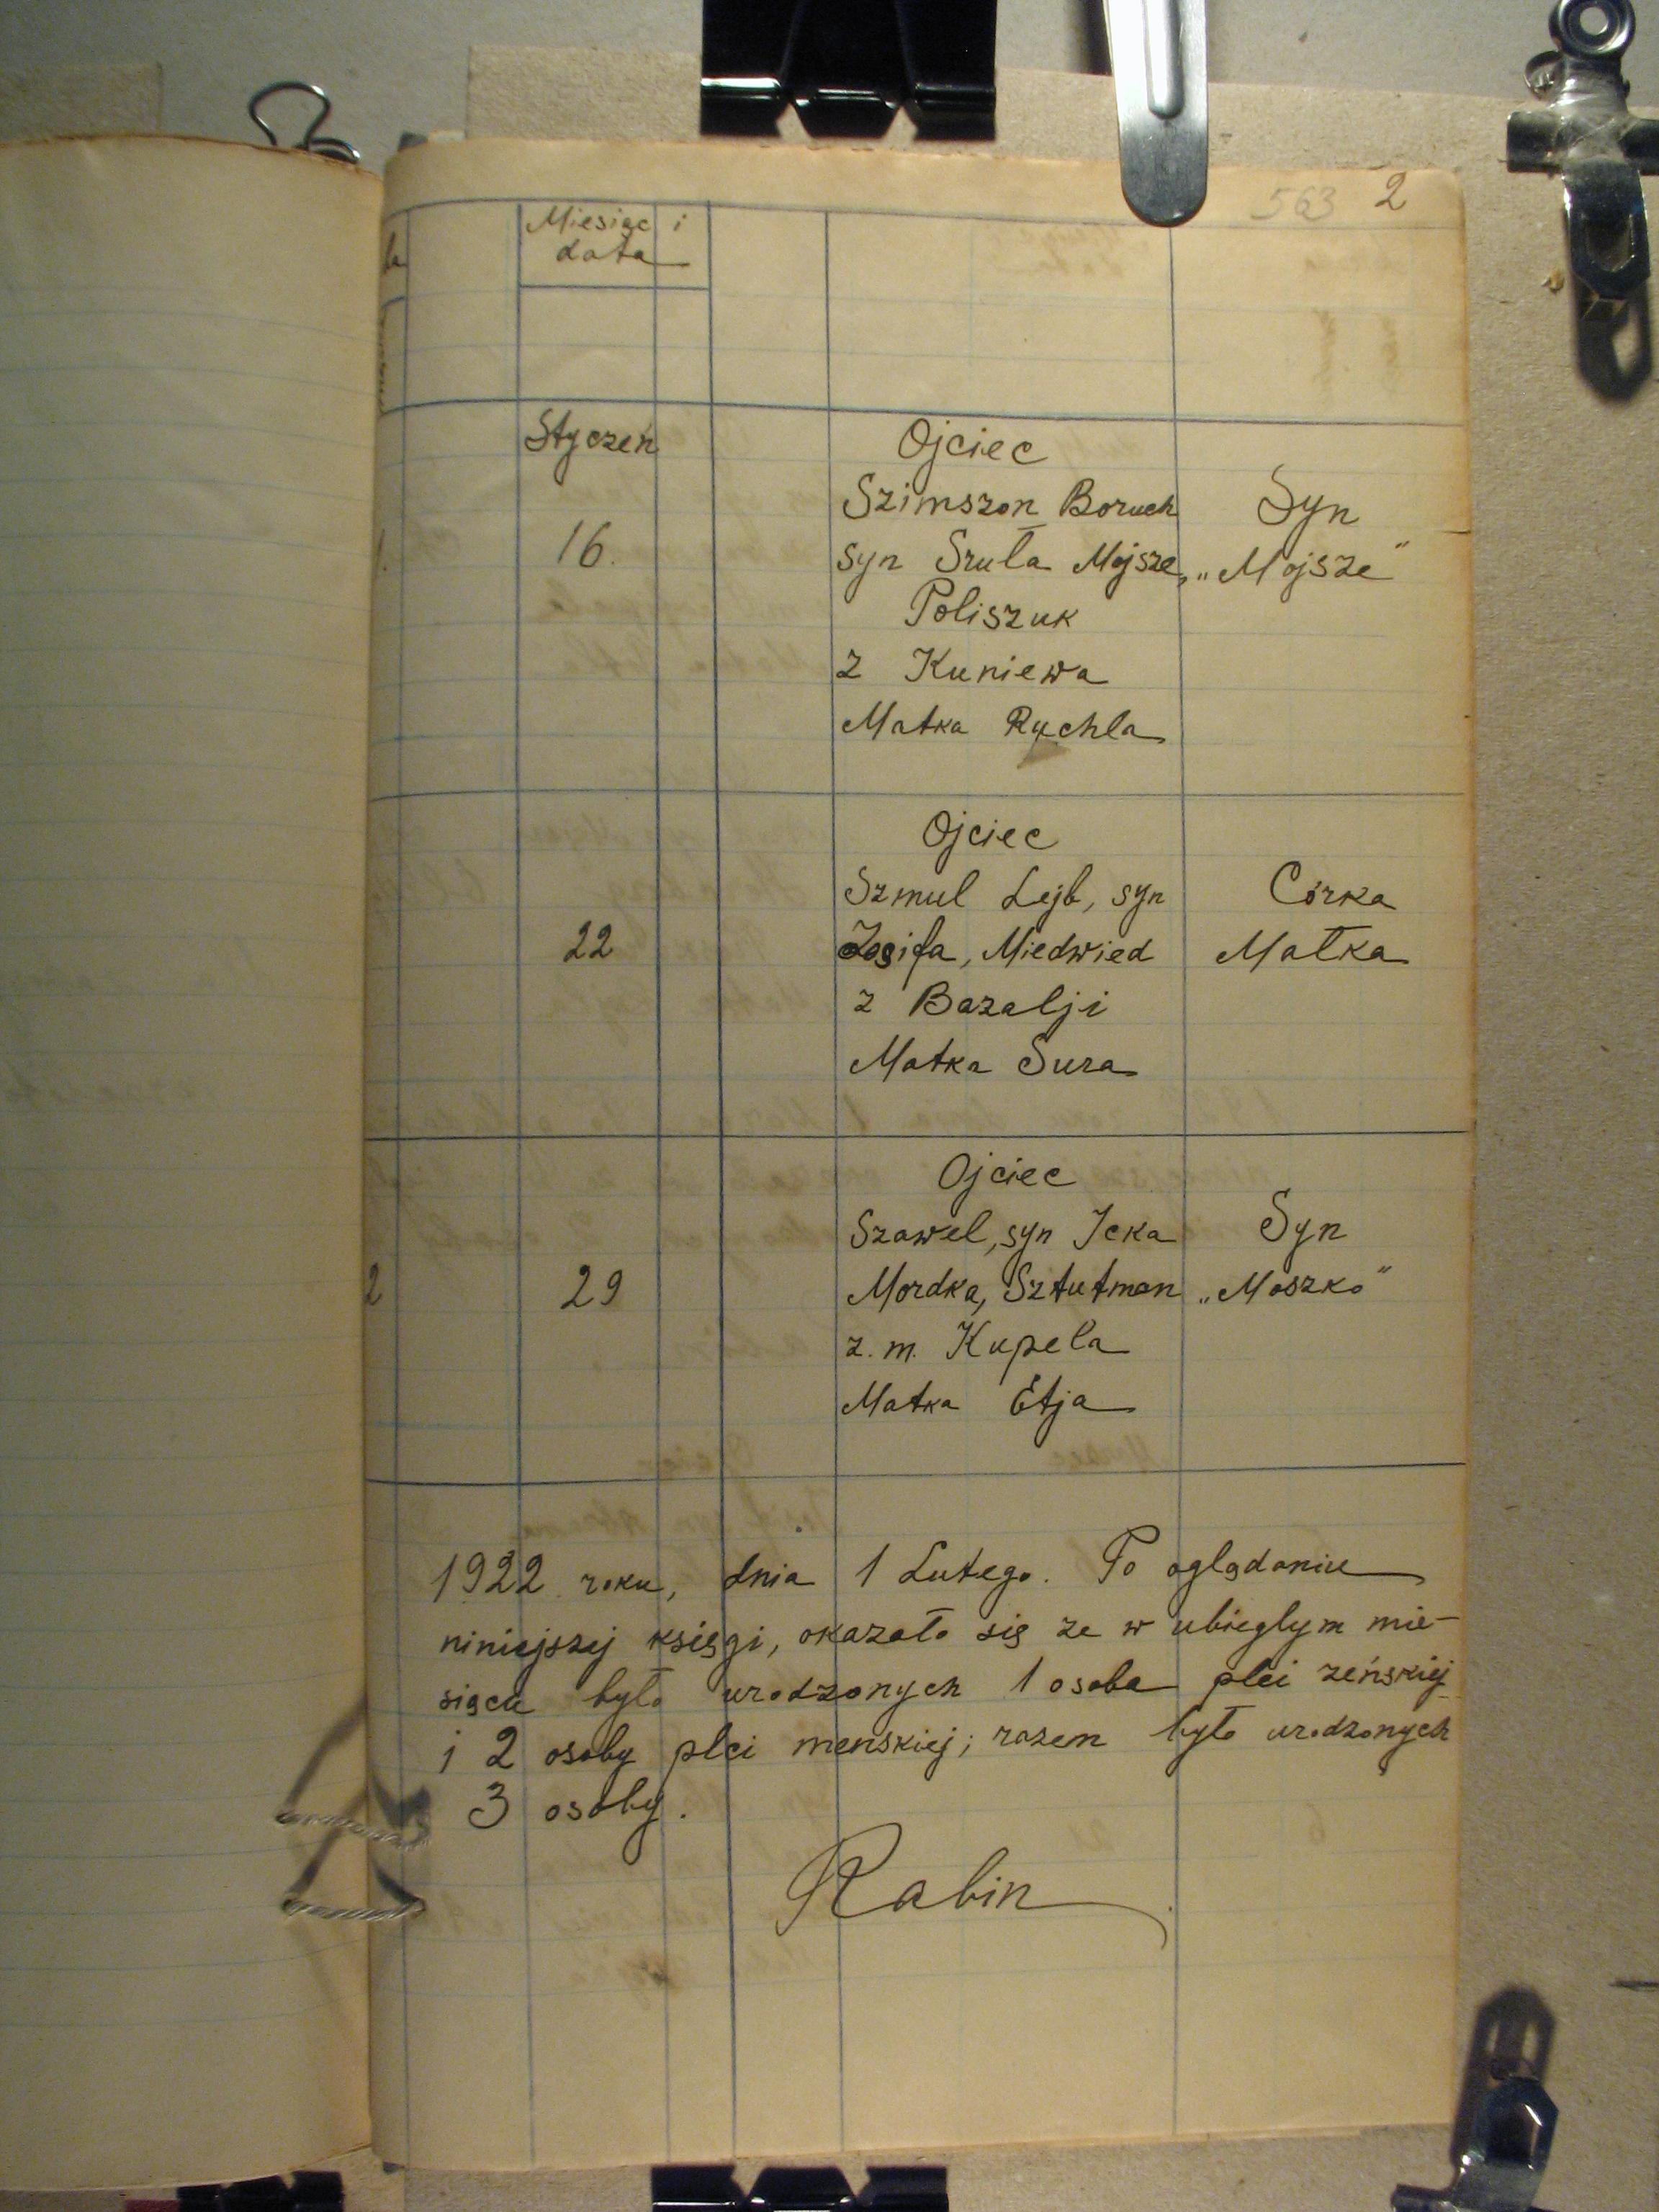 563 2
Miesiąc i
data
Styczeń
Ojciec
Szimszon Boruch
syn Sruła Mojsze,
Poliszuk
z Kuniewa
Matka Ruchla
1.
16.
Syn
„Mojsze"
Ojciec
Szmul Lejb, syn
Josifa, Miedwied
z Bazalji
Matka Sura
22
Córka
Małka
Ojciec
Szawel, syn Icka
Mordka, Sztutman
z. m. Kupela
Matka Etja
2
29
Syn
„Moszko"
1922 roku, dnia 1 Lutego. Po oglądaniu
niniejszej księgi, okazało się ze w ubiegłym mie-
siącu było urodzonych 1 osoba płci żeńskiej
i 2 osoby płci menskiej; razem było urodzonych
3 osoby.
Rabin